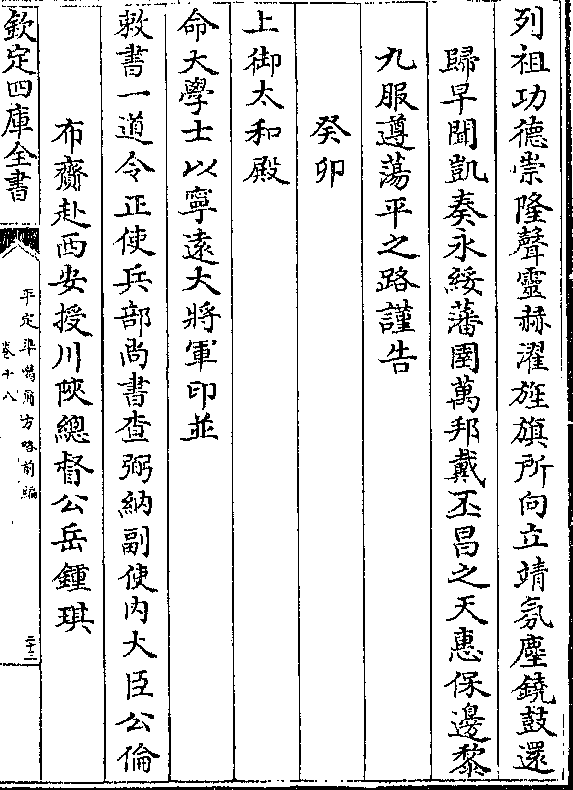 列祖功德崇隆聲靈赫濯旌旗所向立靖氛塵鐃鼓還
歸早聞凱奏永綏藩圉萬邦戴丕昌之天惠保邊黎
九服遵蕩平之路謹告
癸卯
上御太和殿
命大學士以寧遠大將軍印並
敕書一道令正使兵部尚書查弼納副使内大臣公倫
布齎赴西安授川陝總督公岳鍾琪
欽定四庫全書
平定準噶爾方略前編
卷十八
二十二